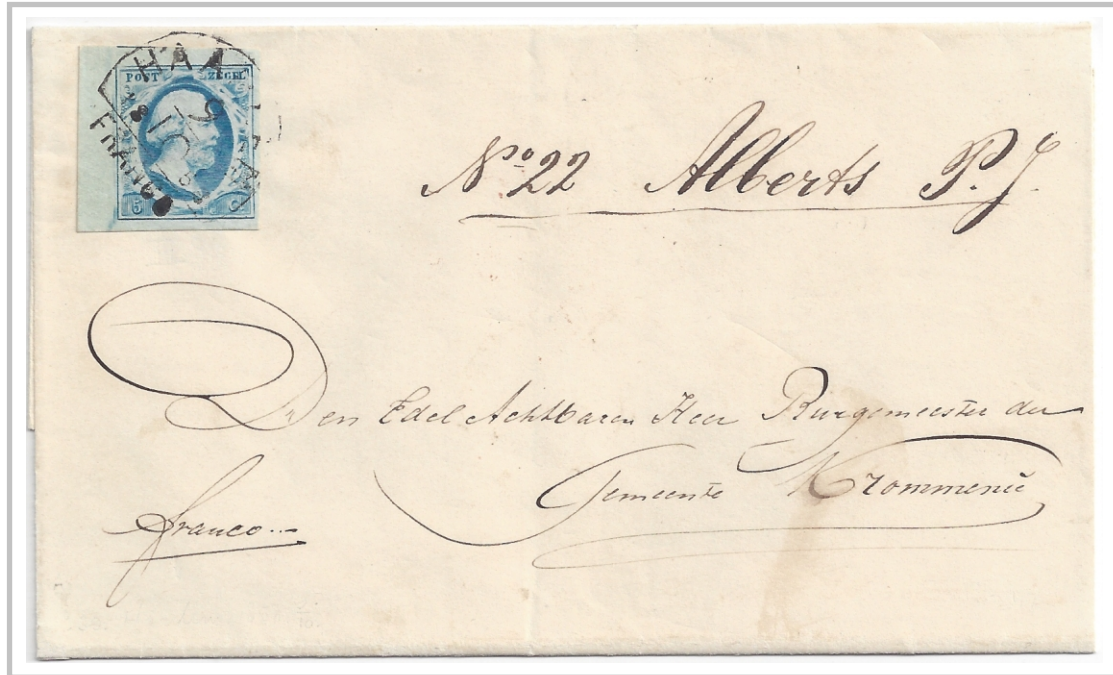 POST ZEGEL
HAA
FRANCO
5 C
No 22 Alberts P.J.
Den Edel Achtbaren Heer Burgemeester der
Gemeente Krommenie
franco